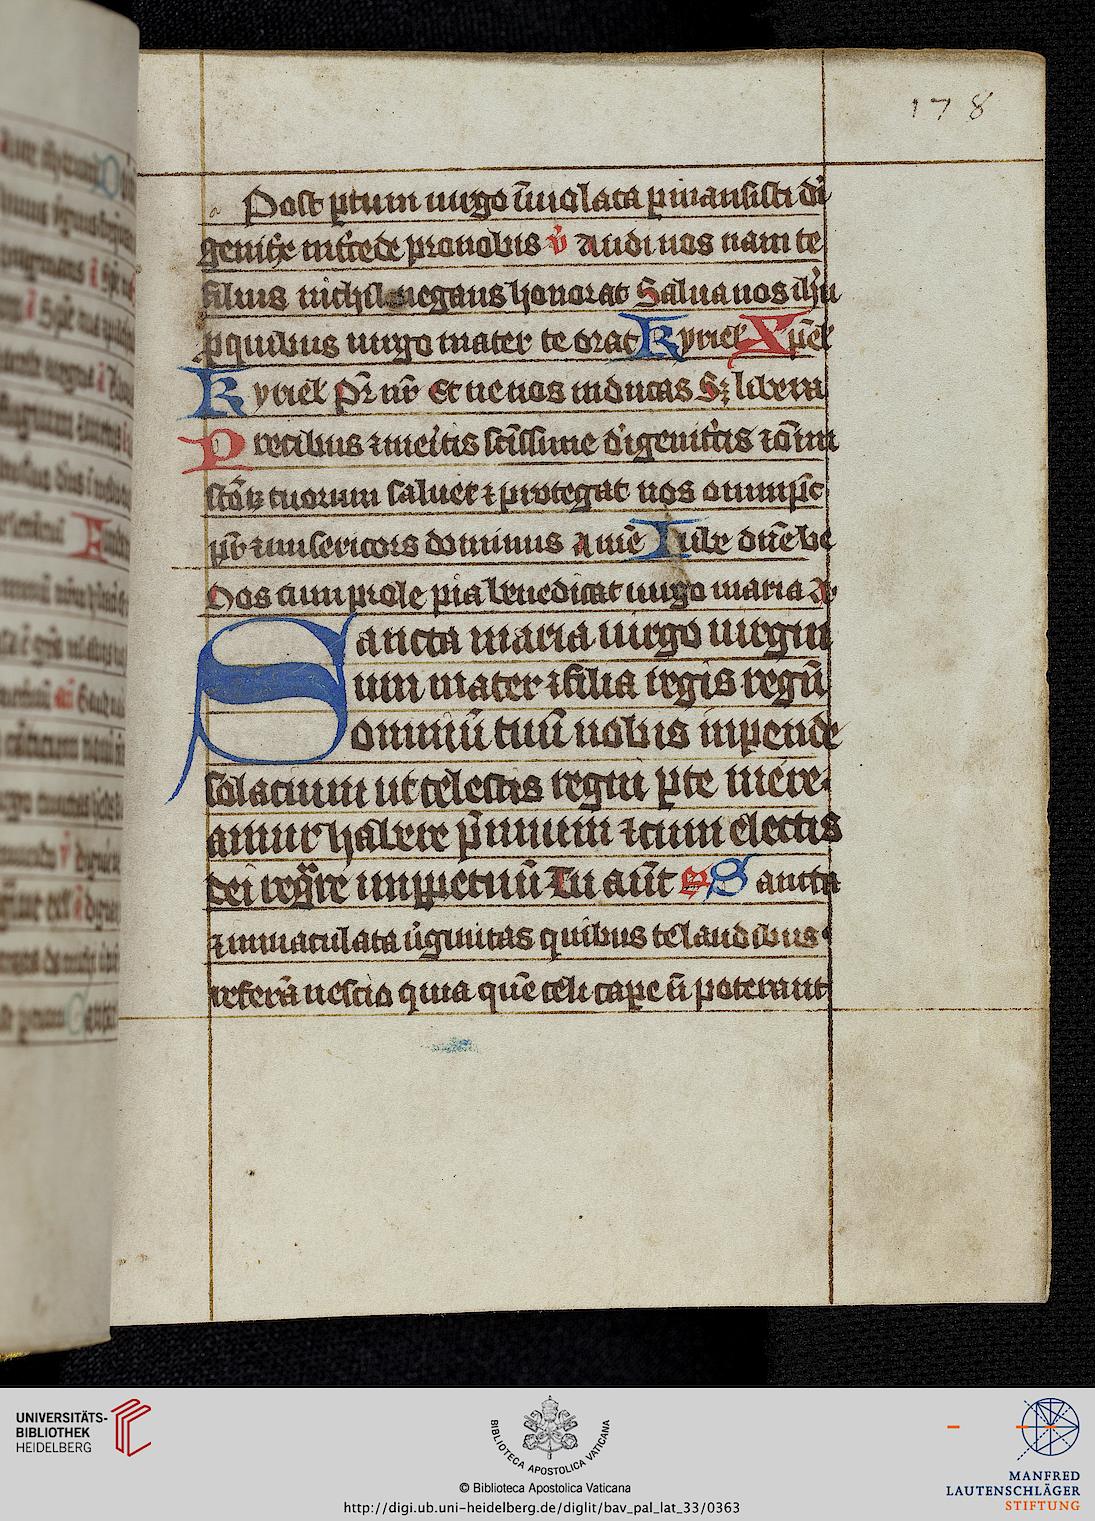 178
Post ptum uirgo īuiolata pmansisti di
genitͥx int̄cede pro nobis v̄ Audi nos nam te
filius nichil negans honorat Salua nos ihū
p quibus uirgo mater te orat Kyriel Xp̄el
Kyriel Pr̄ nr̄ Et ne nos inducas Sꝫ libera
Precibus ⁊ meritis sc̄issime di genitͥcis ⁊ om̄iū
sc̄oꝝ tuorum saluet ⁊ protegat nos omnip̄c
⁊ misericors dominus Amē Iube dn̄e be
Nos cum prole pia benedicat uirgo maria
Sancta maria uirgo uirgin
um mater ⁊ filia regis regū
omniū tuū nobis inpende
solacium ut celestis regni p te mere
amur habere p̄mium ⁊ cum electis
dei regͣre inppetuū Tu aūt Sancta
⁊ immaculata uͥginitas quibus te laudibus
referā nescio quia quē celi cape n̄ poterant
UNIVERSITÄTS-
BIBLIOTHEK
HEIDELBERG
BIBLIOTECA APOSTOLICA VATICANA
© Biblioteca Apostolica Vaticana
http://digi.ub.uni-heidelberg.de/diglit/bav_pal_lat_33/0363
MANFRED
LAUTENSCHLÄGER
STIFTUNG